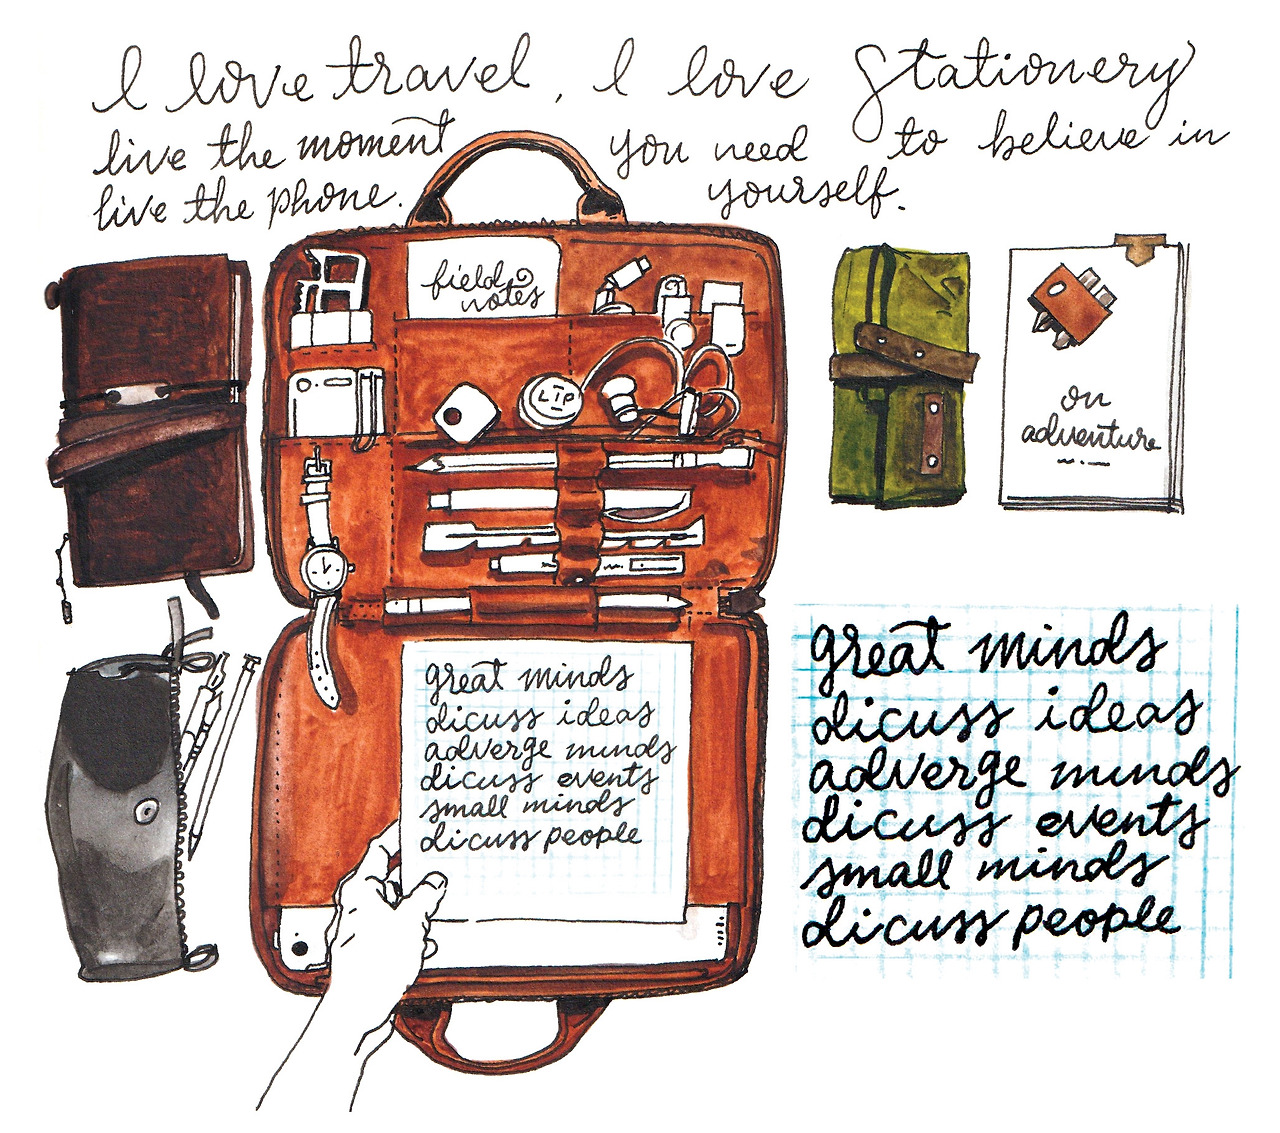 I love travel, I love Stationery
live the moment
live the phone.
you need to believe in
yourself.
field
notes
LIP
on
adventure
great minds
dicuss ideas
adverge minds
dicuss events
small minds
dicuss people
great minds
dicuss ideas
adverge minds
dicuss events
small minds
dicuss people